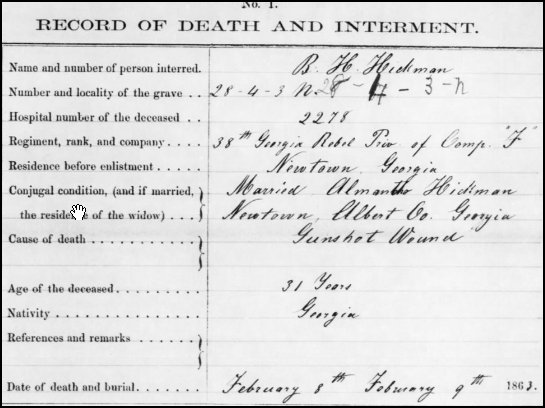 No. 1.
RECORD OF DEATH AND INTERMENT.
Name and number of person interred. B. H. Hickman
Number and locality of the grave . . 28-4-3 N. 28 - 4 - 3 - N
Hospital number of the deceased . . 2278
Regiment, rank, and company . . . . 38th Georgia Rebel Priv. of Comp. "F"
Residence before enlistment . . . . Newtown, Georgia
Conjugal condition, (and if married, Married Hickman
the residence of the widow) . . . Newtown, Albert Co. Georgia
Cause of death . . . . . . . . . . . Gunshot Wound
Age of the deceased . . . . . . . . . 31 Years
Nativity . . . . . . . . . . . . . . . . Georgia
References and remarks . . . . . .
Date of death and burial . . . . . . . February 8th February 9th 1863.